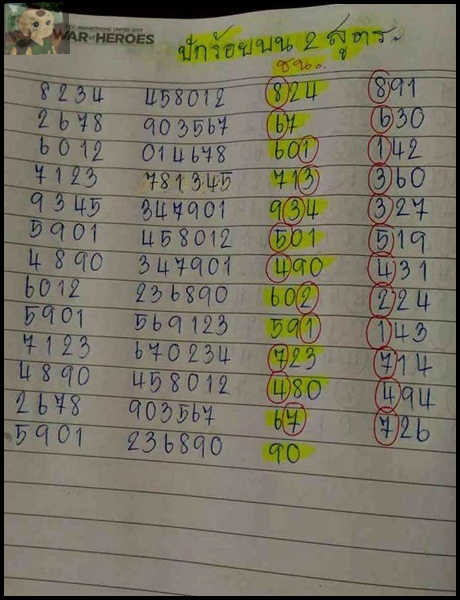 YETI MONKEYPHONIC UNITED 2017
WAR OF HEROES
ปักร้อยบน 2 สูตร
ชน.
8234 458012 824 891
2678 903567 67 630
6012 014678 601 142
7123 781345 713 360
9345 347901 934 327
5901 458012 501 519
4890 347901 490 431
6012 236890 602 224
5901 569123 591 143
7123 670234 723 714
4890 458012 480 494
2678 903567 67 726
5901 236890 90